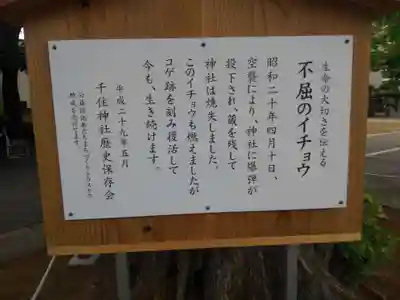 生命の大切さを伝える
不屈のイチョウ
昭和二十年四月十日、
空襲により、神社に爆弾が
投下され、蔵を残して
神社は焼失しました。
このイチョウも燃えましたが
コゲ跡を刻み復活して
今も、生き続けます。
平成二十九年五月
千住神社歴史保存会
助成を受けてます。